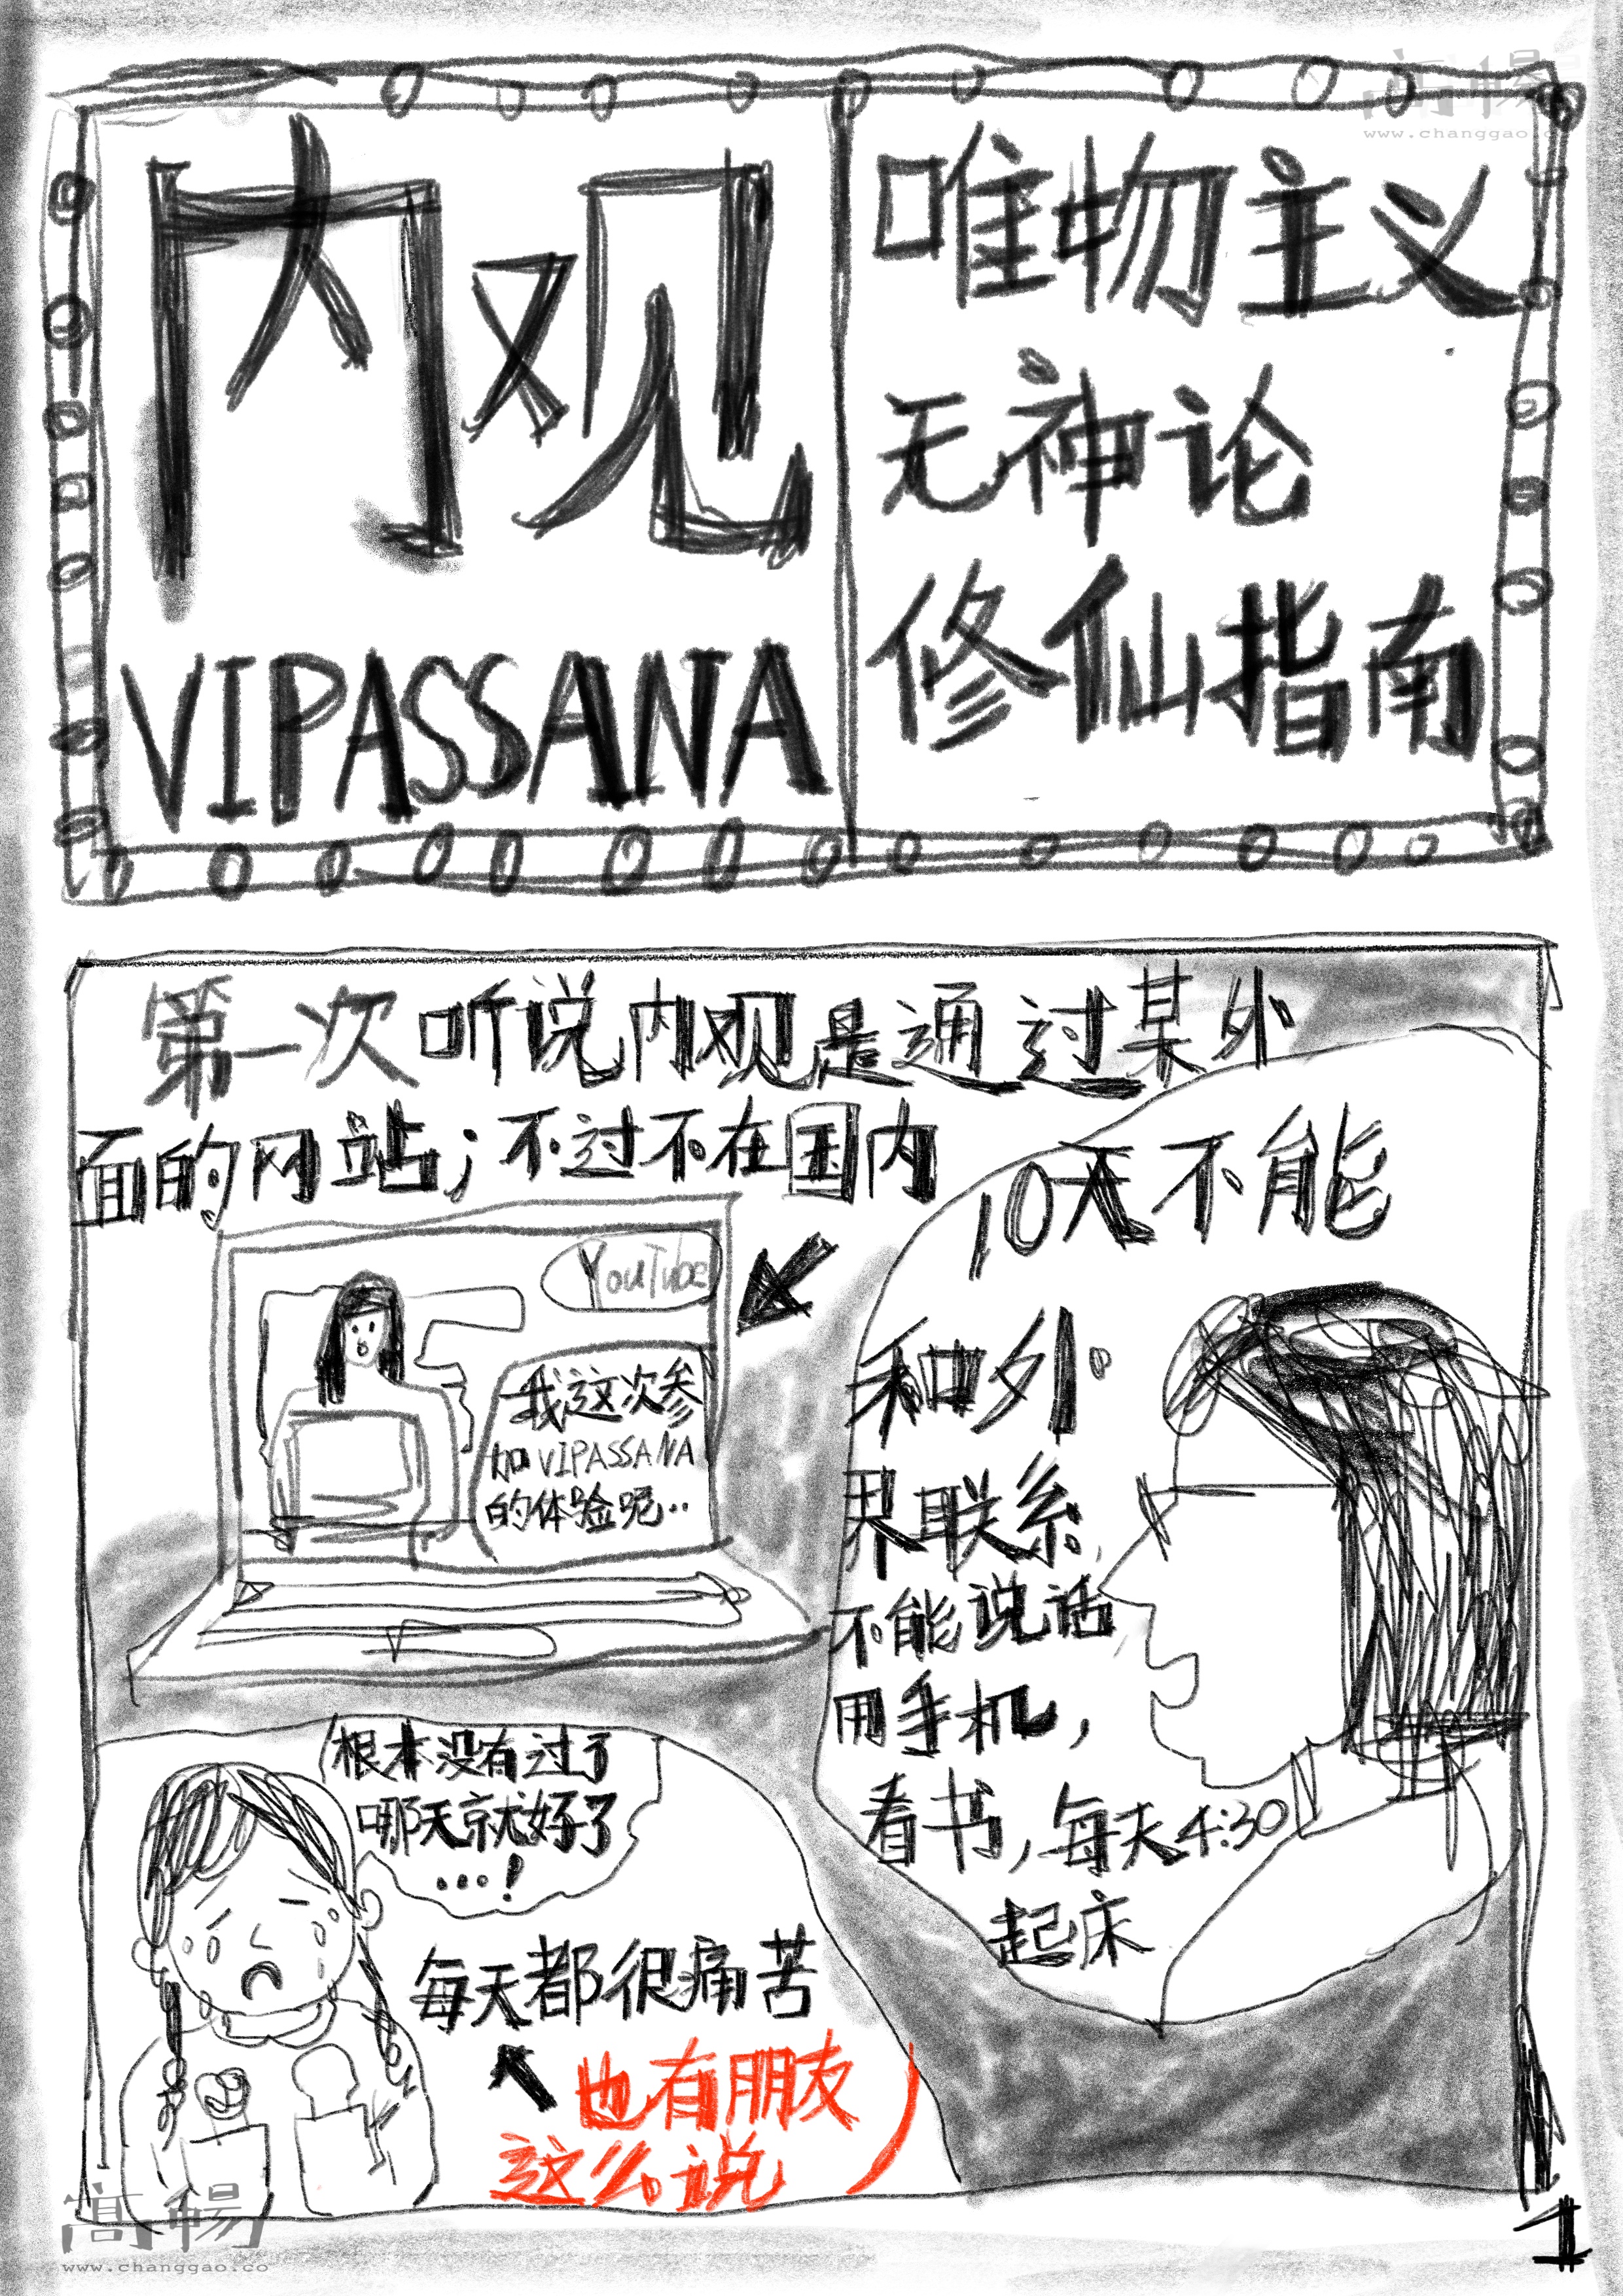 内观
VIPASSANA
唯物主义
无神论
修仙指南
第一次听说内观是通过某外
面的网站；不过不在国内
YouTube
我这次参
加VIPASSANA
的体验呢..
10天不能
和外
界联系
不能说话
用手机，
看书，每天4:30
起床
根本没有过了
哪天就好了
...！
每天都很痛苦
也有朋友
这么说
1
高畅
www.changgao.co
高暢
www.changgao.co